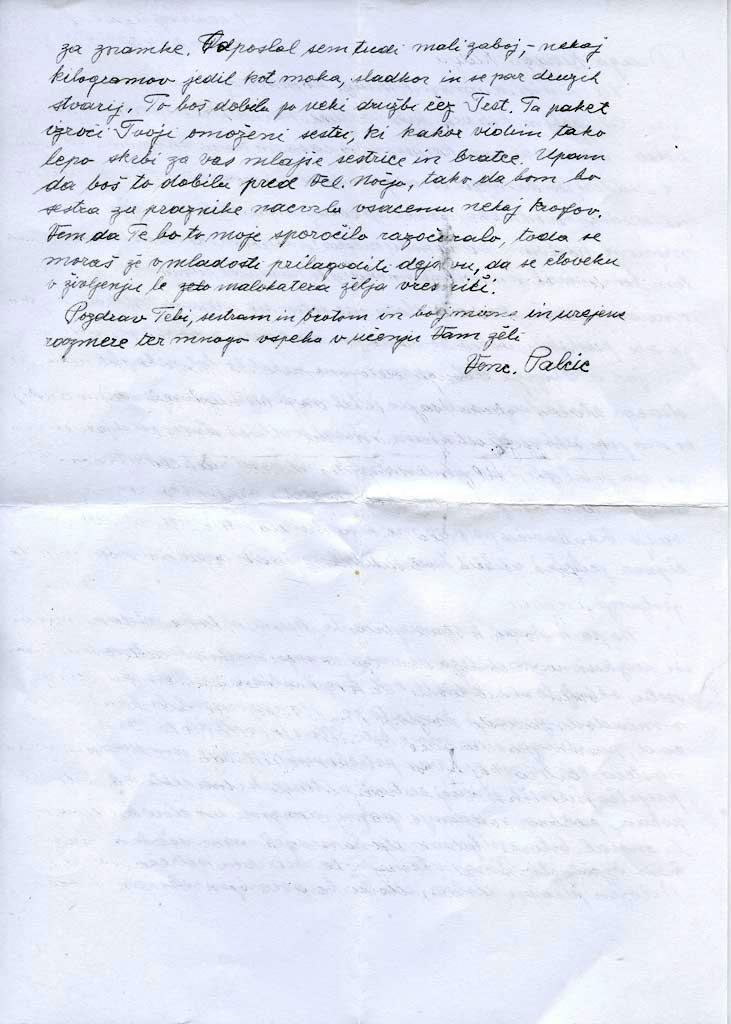 za znamke. Odposlal sem tudi mali zaboj, - nekaj
kilogramov jedil kot moka, sladkor in se par druzih
stvarij. To boš dobila po neki družbi čez Trst. Ta paket
izroči Tvoji omoženi sestri, ki kakor vidim tako
lepo skrbi za vas mlajše sestrice in bratce. Upam
da boš to dobila pred Vel. Nočjo, tako da bom bo
sestra za praznike nacvrla vsacemu nekaj krofov.
Vem da Te bo to moje sporočilo razočaralo, toda se
moraš že v mladosti prilagoditi dejstvu, da se človeku
v življenju le malokatera želja vresniči.
Pozdrav Tebi, sestram in bratom in bolj mirne in urejene
razmere ter mnogo vspeha v učenju Vam želi
Venc. Palčič